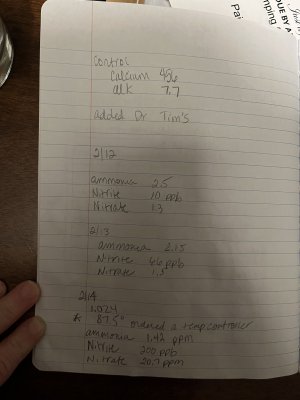 DUE BY A
Pai
mping,
Control
Calcium 456
alk 7.7
added Dr Tim's
2/12
ammonia 2.5
Nitrite 10 ppb
Nitrate 1.3
2/13
ammonia 2.15
Nitrite 66 ppb
Nitrate 1.5
2/14
* 87.5° ordered a temp controller
ammonia 1.42 ppm
Nitrite 200 ppb
Nitrate 20.7 ppm